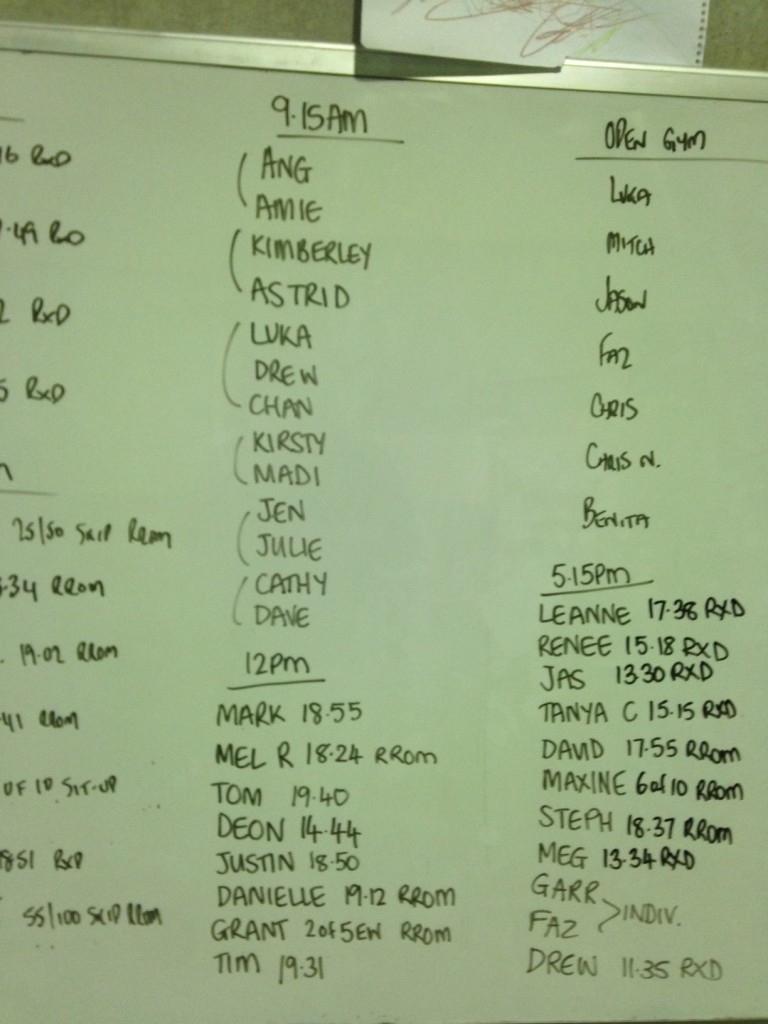 16 RXD
.49 RXD
2 RXD
5 RXD
25/50 SKIP RROM
.34 RROM
. 19.02 RROM
41 RROM
OF 10 SIT-UP
1851 RXD
55/100 SKIP RROM
9.15AM
ANG
AMIE
KIMBERLEY
ASTRID
LUKA
DREW
CHAN
KIRSTY
MADI
JEN
JULIE
CATHY
DAVE
12PM
MARK 18.55
MEL R 18.24 RROM
TOM 19.40
DEON 14.44
JUSTIN 18.50
DANIELLE 19.12 RROM
GRANT 2 of 5EW RROM
TIM 19.31
OPEN GYM
LUKA
MITCH
JASON
FAZ
CHRIS
CHRIS N.
BENITA
5.15PM
LEANNE 17.38 RXD
RENEE 15.18 RXD
JAS 13.30 RXD
TANYA C 15.15 RXD
DAVID 17.55 RROM
MAXINE 6 of 10 RROM
STEPH 18.37 RROM
MEG 13.34 RXD
GARR
FAZ >INDIV.
DREW 11.35 RXD